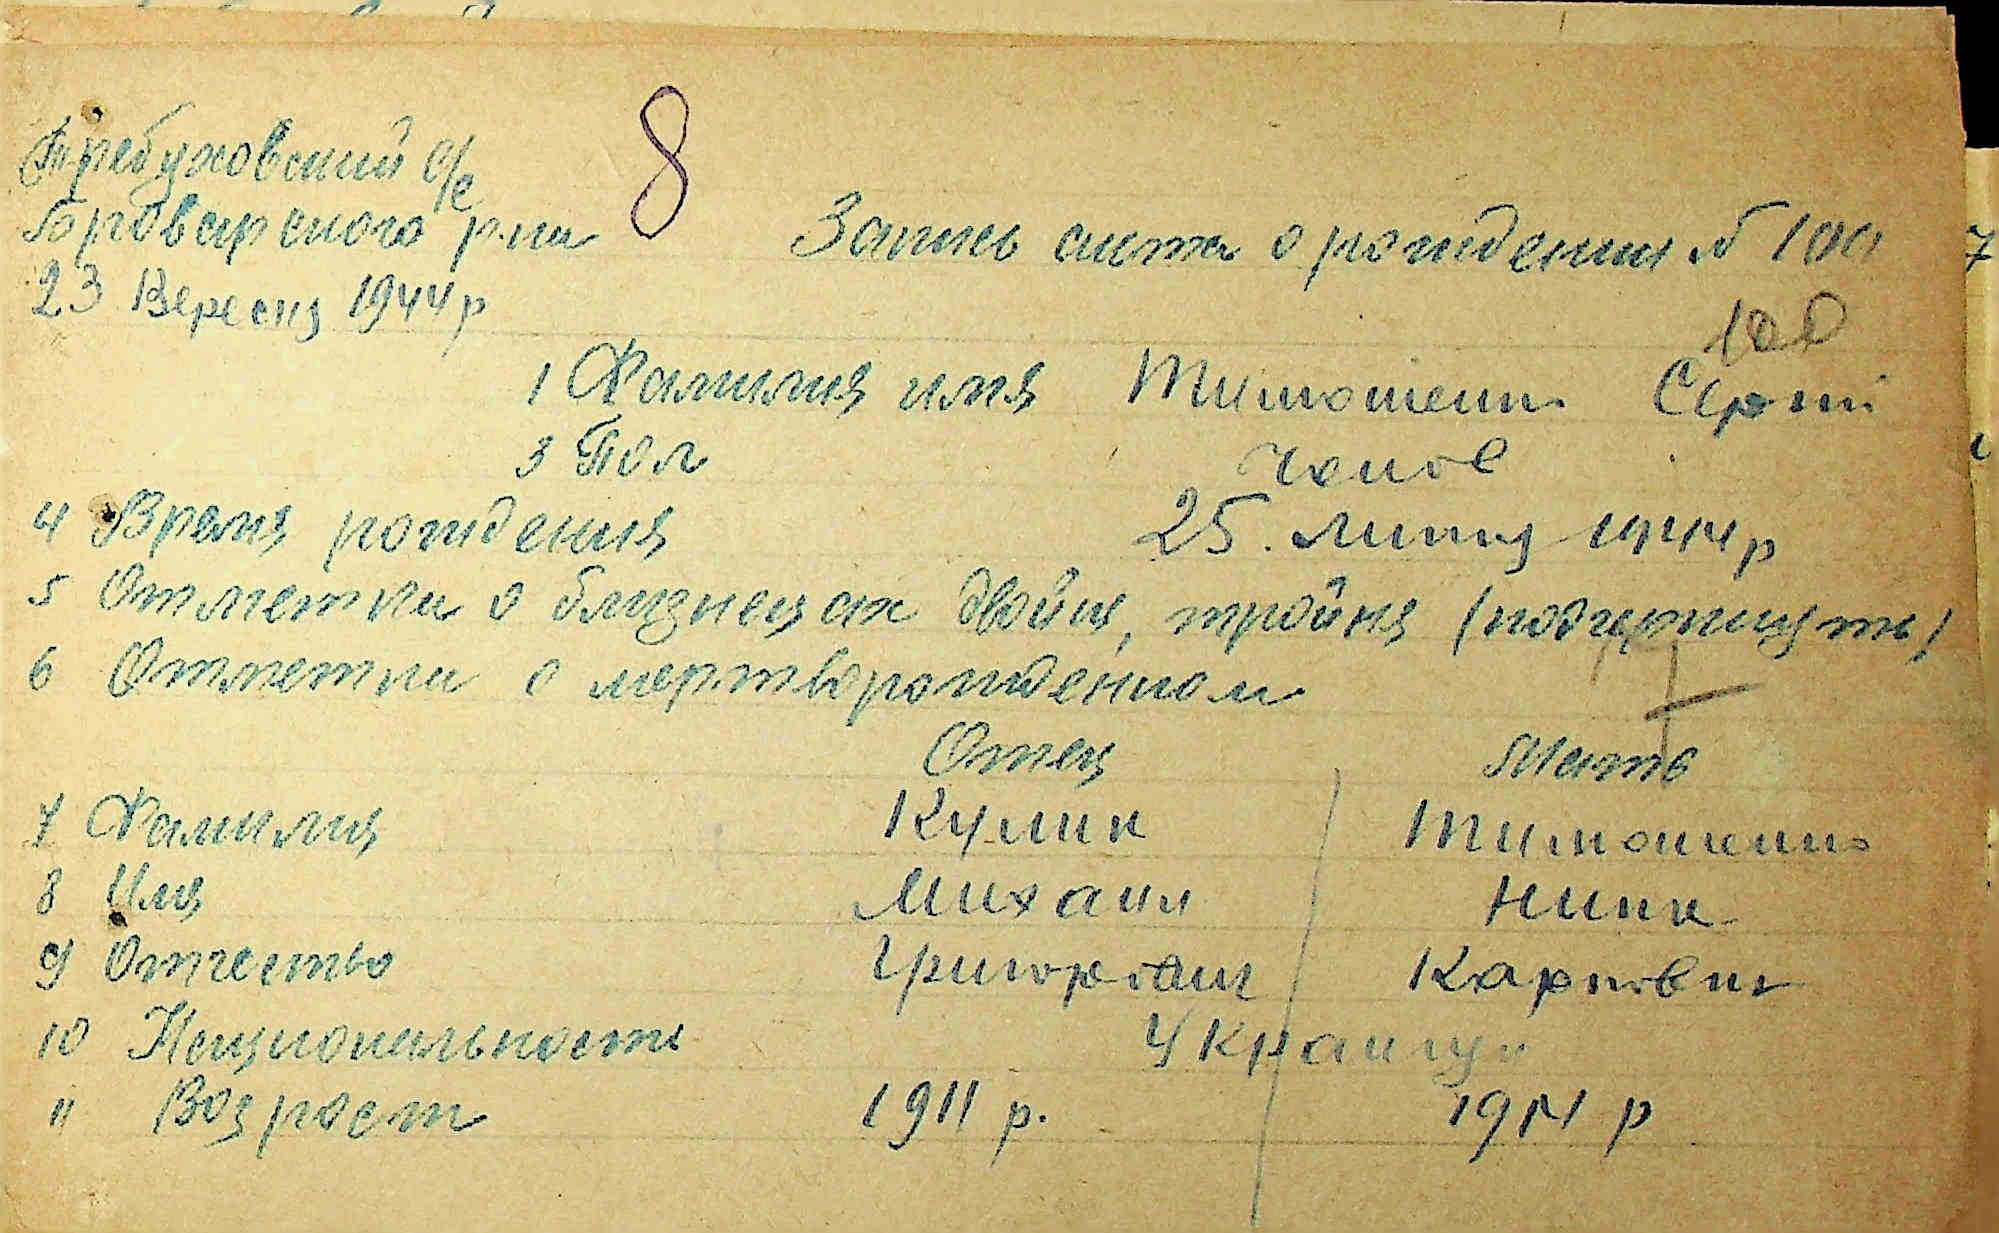 Требуховский с/с 8
Броварского р-на Запись акта о рождении № 100
23 Вересня 1944 р
100
1 Фамилия имя Тимошенко Сергій
3 Пол Чолов
4 Время рождения 25. лютня 1944 р
5 Отметки о близнецах двойня, тройня (подчеркнуть)
6 Отметки о мертворожденном
Отец Мать
7 Фамилия Кулик Тимошенко
8 Имя Михаил Нина
9 Отчество Григорович Карповна
10 Национальность Украинцы
11 Возрост 1911 р. р